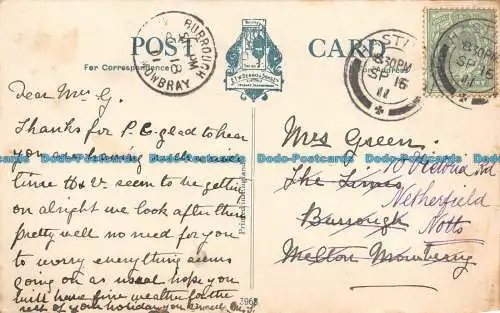 POST CARD
For Correspondence
For Address
BURROUGH
MOWBRAY
SP 18
11
J. W. RUDDOCK & SONS LTD
8.30PM
SP 16
11
Dear Mrs G.
Thanks for P.C. glad to hear
you are having such a nice
time H & V. seem to be getting
on alright we look after them
pretty well no need for you
to worry everything seems
going on as usual hope you
will have fine weather for the
rest of your holiday
Mrs Green.
The Limes
Burrough
Melton Mowbray
10 Victoria Rd
Netherfield
Notts
3968
Dodo-Postcards Dodo-Postcards Dodo-Postcards Dodo-Postcards Dodo-Postcards